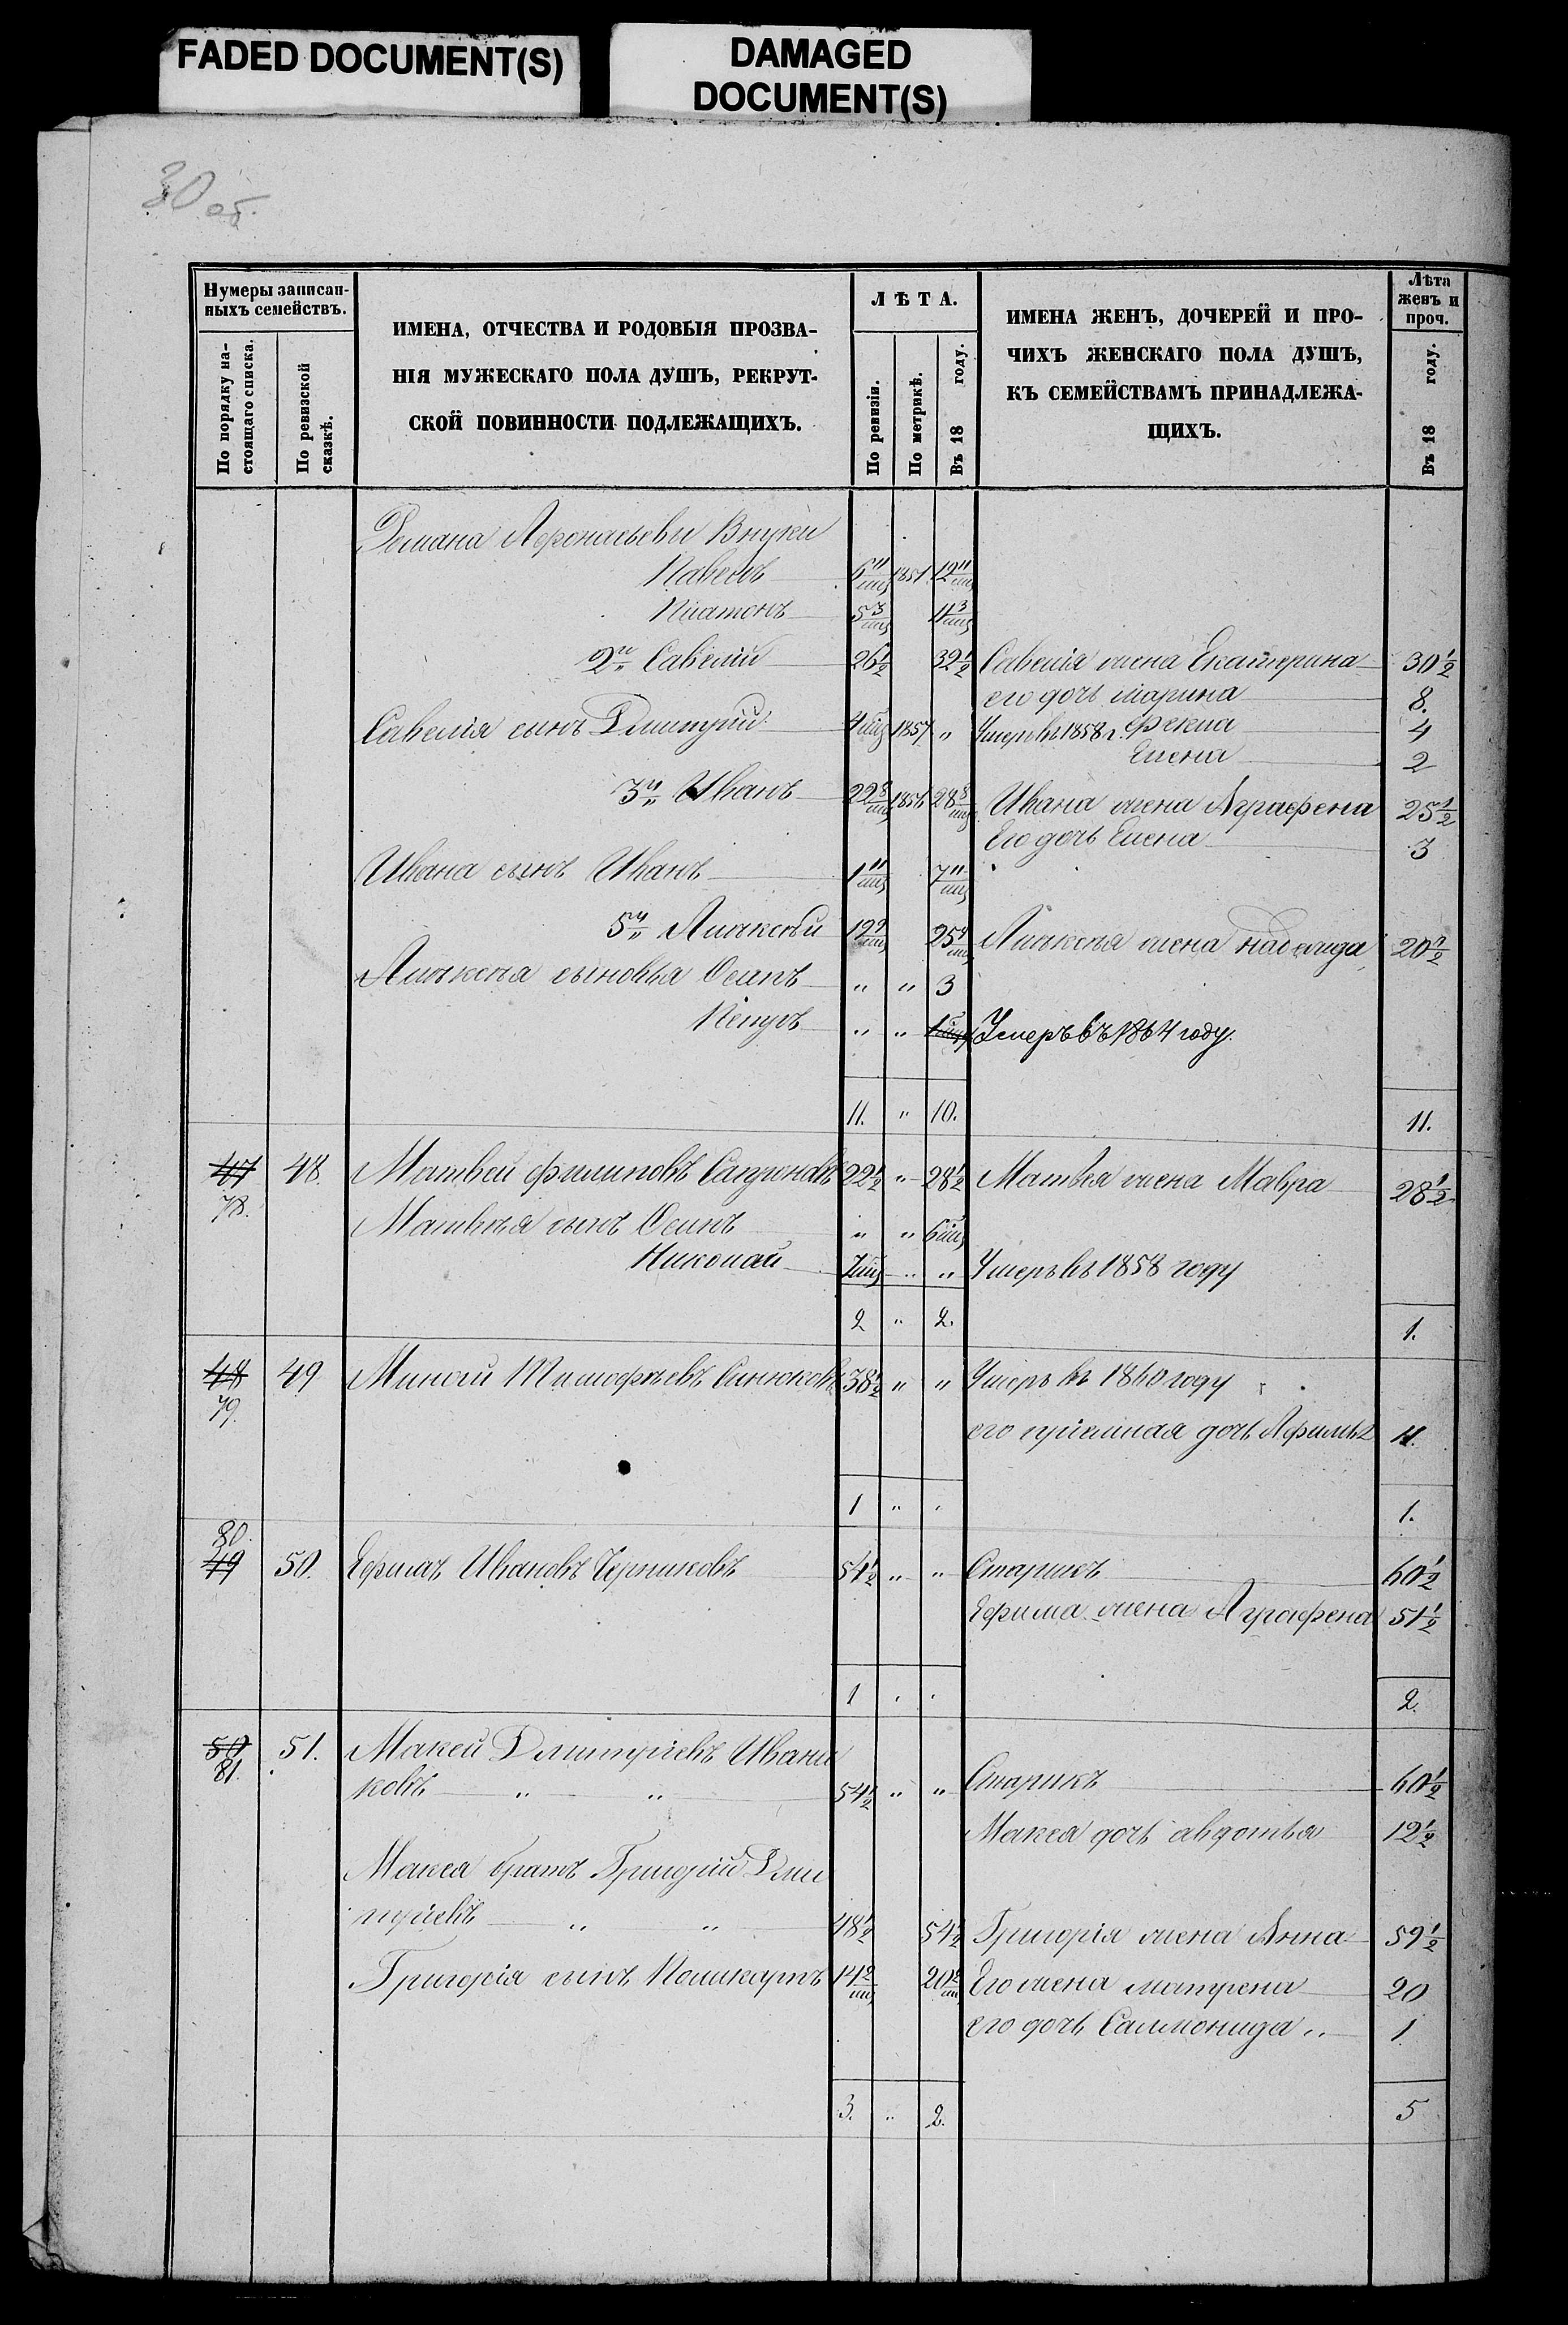 FADED DOCUMENT(S)
DAMAGED
DOCUMENT(S)
30 об.
Нумеры записан-
ныхъ семействъ.
По порядку на-
стоящаго списка.
По ревизской
сказкѣ.
ИМЕНА, ОТЧЕСТВА И РОДОВЫЯ ПРОЗВА-
НІЯ МУЖЕСКАГО ПОЛА ДУШЪ, РЕКРУТ-
СКОЙ ПОВИННОСТИ ПОДЛЕЖАЩИХЪ.
ЛѢТА.
По ревизіи.
По метрикѣ.
Въ 18 году.
ИМЕНА ЖЕНЪ, ДОЧЕРЕЙ И ПРО-
ЧИХЪ ЖЕНСКАГО ПОЛА ДУШЪ,
КЪ СЕМЕЙСТВАМЪ ПРИНАДЛЕЖА-
ЩИХЪ.
Лѣта
женъ и
проч.
Въ 18 году.
Внуки
Павелъ 6 11/мц 1851 12 11/мц
Платонъ 5 3/мц 11 3/мц
2й Савелій 26½ 32½ Савелія жена Екатерина 30½
его дочь Марина 8.
Савелія сынъ Дмитрій 1857 " Умеръ въ 1858 г. Фекла 4
Елена 2
3й Иванъ 22 8/мц 28 8/мц Ивана жена Аграфена 25½
Его дочь Елена 3
Ивана сынъ Иванъ 1 11/мц 7 11/мц
5й Алексѣй 25 Алексѣя жена надежда 20½
Алексѣя сыновья Осипъ " " 3
Петръ " " Умеръ въ 1864 году.
11. " 10. 11.
47 48. Матвей филиповъ 22½ " 28½ Матвѣя жена Мавра 28½
78.
Матвѣя сынъ Осипъ " " 6 мц
Николай " " Умеръ въ 1858 году
2 " 2. 1.
48 49 Тимофѣевъ 38½ " " Умеръ въ 1860 году
79. его приемная дочь 11.
1 " " 1.
80.
49 50. Ефимъ Ивановъ 54½ " " Старикъ 60½
Ефима жена Аграфена 51½
1 " " 2.
50 51. Макей Дмитріевъ Ивани
81. ковъ " " 54½ " " Старикъ 60½
Макея дочь авдотья 12½
Макея братъ Григорій Дми
тріевъ " " 48½ 54½ Григорія жена Анна 59½
Григорія сынъ Поликарпъ 14 2/мц 20 2/мц Его жена матрена 20
его дочь Саломонида " 1
3. " 2. 5